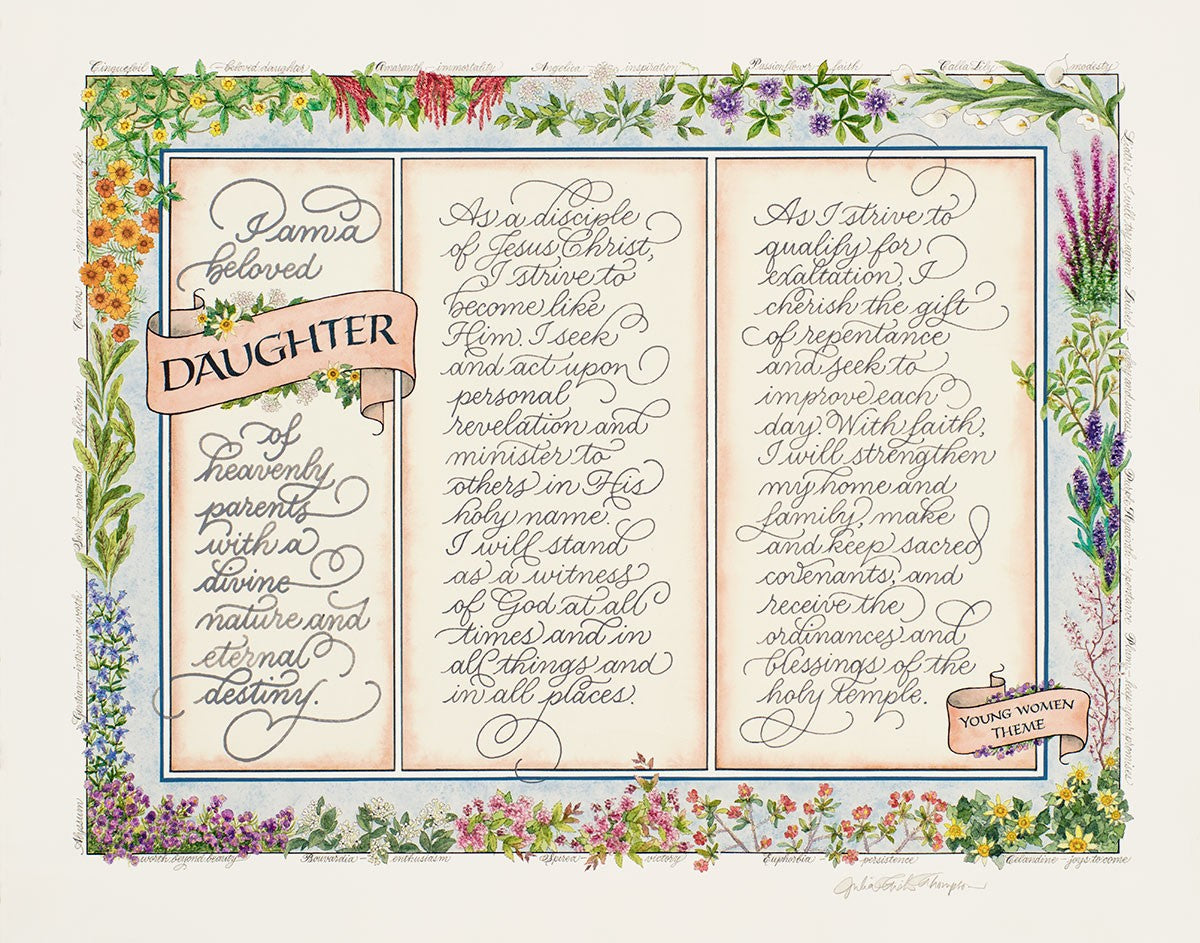 Cinquefoil – beloved daughter
Amaranth – immortality
Angelica – inspiration
Passionflower – faith
Calla Lily – modesty
I am a
beloved
DAUGHTER
of
heavenly
parents
with a
divine
nature and
eternal
destiny.
As a disciple
of Jesus Christ,
I strive to
become like
Him. I seek
and act upon
personal
revelation and
minister to
others in His
holy name.
I will stand
as a witness
of God at all
times and in
all things and
in all places.
As I strive to
qualify for
exaltation, I
cherish the gift
of repentance
and seek to
improve each
day. With faith,
I will strengthen
my home and
family, make
and keep sacred
covenants, and
receive the
ordinances and
blessings of the
holy temple.
YOUNG WOMEN
THEME
Cosmos – joy in love and life
Sorrel – parental affection
Gentian – intrinsic worth
Alyssum – worth beyond beauty
Bouvardia – enthusiasm
Spirea – victory
Euphorbia – persistence
Celandine – joys to come